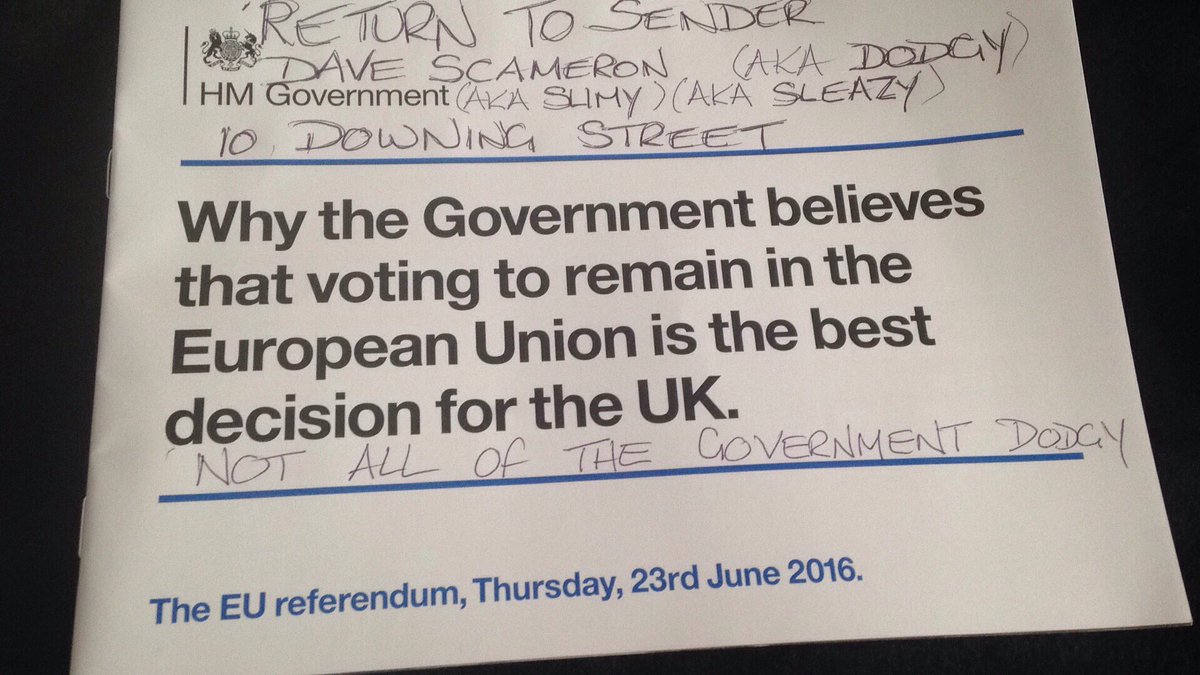 'RETURN TO SENDER
DAVE SCAMERON (AKA DODGY)
HM Government (AKA SLIMY) (AKA SLEAZY)
10, DOWNING STREET
Why the Government believes
that voting to remain in the
European Union is the best
decision for the UK.
'NOT ALL OF THE GOVERNMENT DODGY
The EU referendum, Thursday, 23rd June 2016.